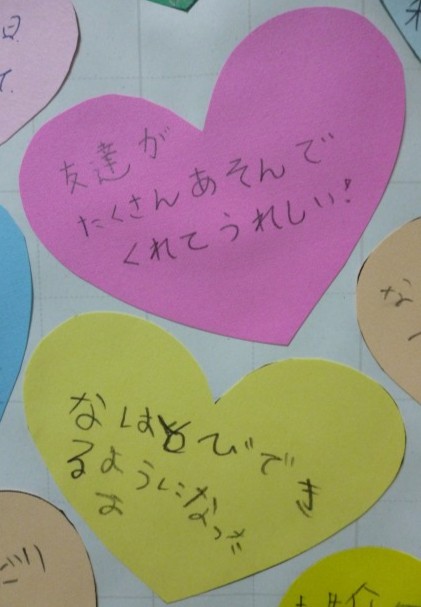 友達が
たくさんあそんで
くれてうれしい!
なはとびでき
るようになった
な